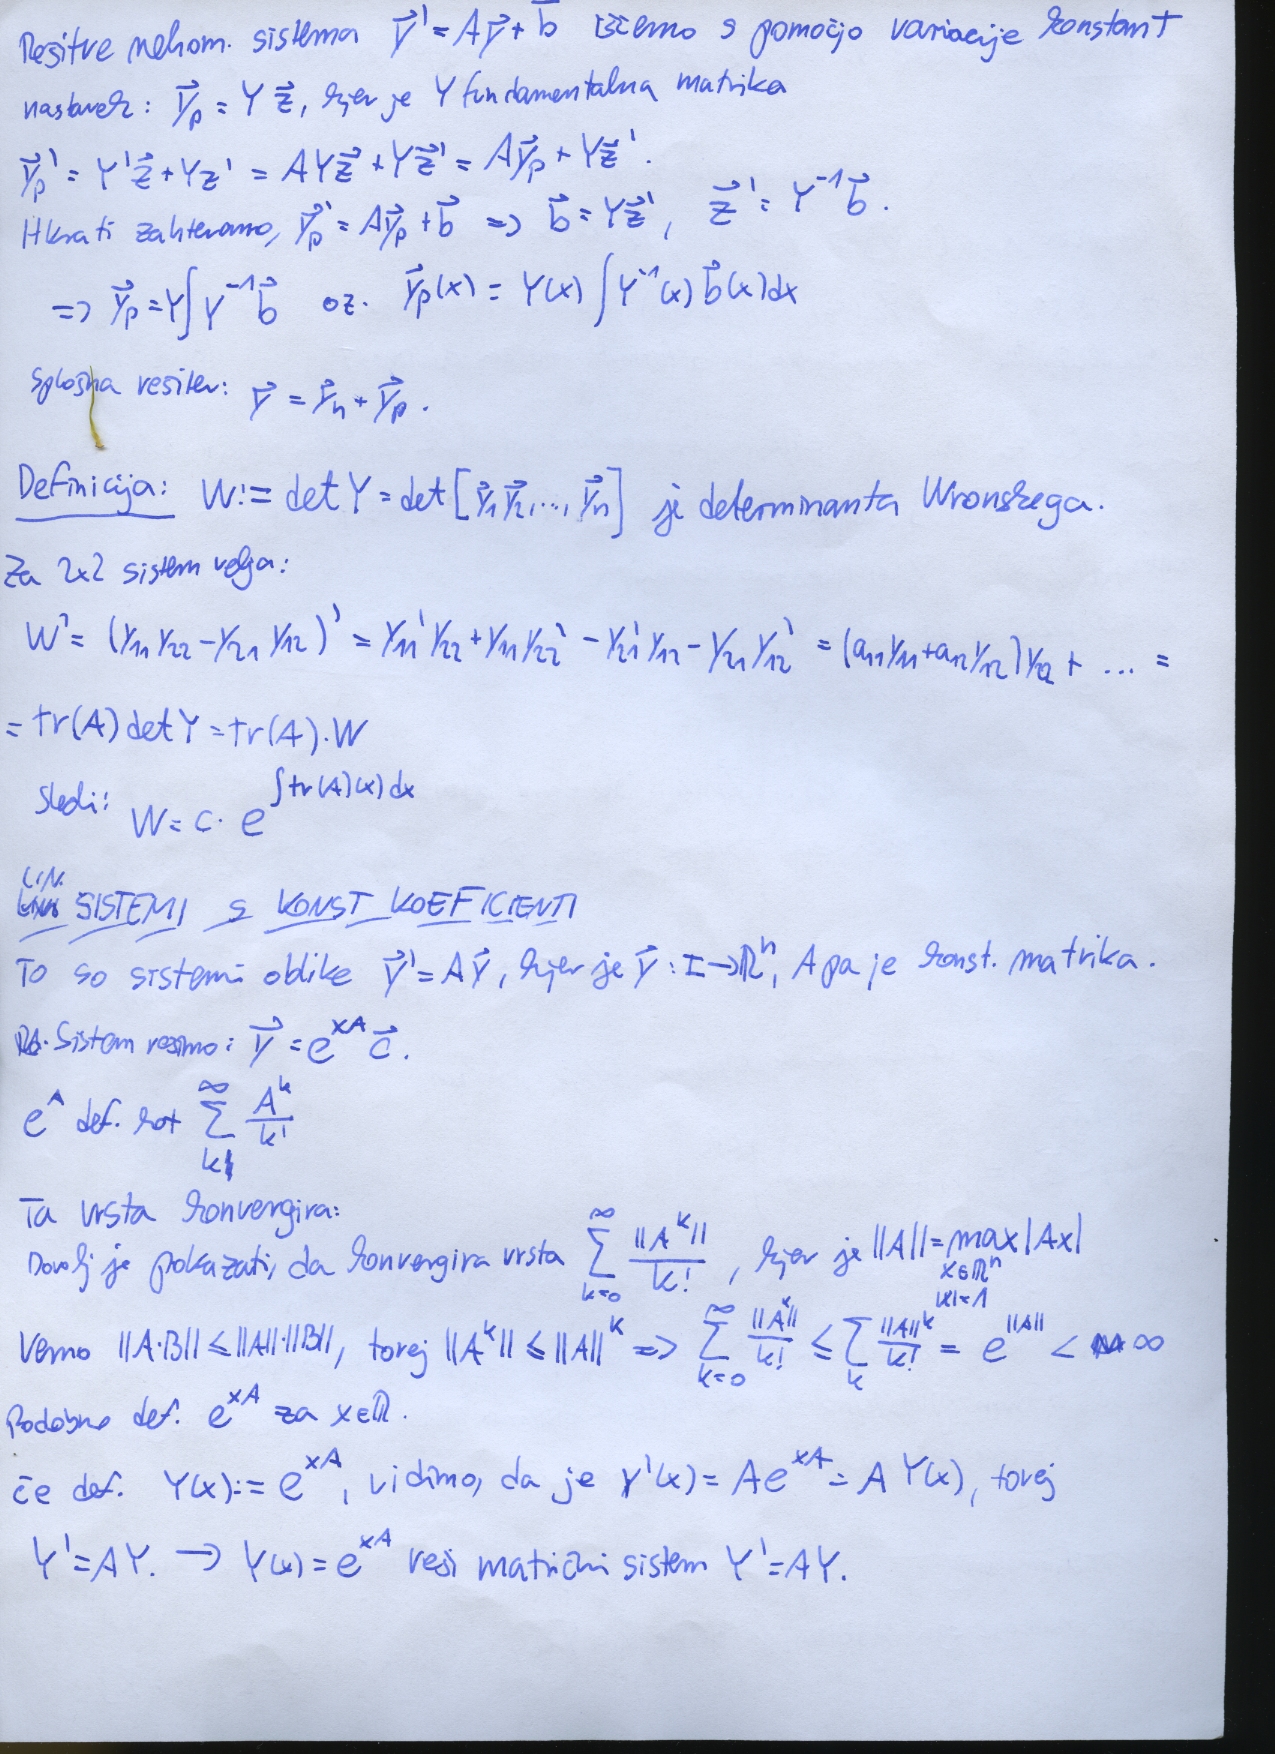 Rešitve nehom. sistema \vec{y}' = A\vec{y} + \vec{b} iščemo s pomočjo variacije konstant
nastavek: \vec{y}_p = Y\vec{z}, kjer je Y fundamentalna matrika
\vec{y}_p' = Y'\vec{z} + Yz' = AY\vec{z} + Y\vec{z}' = A\vec{y}_p + Y\vec{z}'.
Hkrati zahtevamo, \vec{y}_p' = A\vec{y}_p + \vec{b} => \vec{b} = Y\vec{z}', \vec{z}' = Y^{-1}\vec{b}.
=> \vec{y}_p = Y∫Y^{-1}\vec{b} oz. \vec{y}_p(x) = Y(x)∫Y^{-1}(x)\vec{b}(x)dx
Splošna rešitev: \vec{y} = \vec{y}_h + \vec{y}_p.
Definicija: W := det Y = det[\vec{y}_1 \vec{y}_2, ..., \vec{y}_n] je determinanta Wronskega.
Za 2x2 sistem velja:
W' = (y_{11}y_{22} - y_{21}y_{12})' = y_{11}'y_{22} + y_{11}y_{22}' - y_{21}'y_{12} - y_{21}y_{12}' = (a_{11}y_{11} + a_{12}y_{12})y_{22} + ... =
= tr(A) det Y = tr(A)·W
Sledi: W = c· e^{∫tr(A)(x)dx}
LIN. SISTEMI S KONST KOEFICIENTI
To so sistemi oblike \vec{y}' = A\vec{y}, kjer je \vec{y}: I→ℝ^n, A pa je konst. matrika.
Sistem rešimo: \vec{y} = e^{xA}\vec{c}.
e^A def. kot \sum_{k}^{∞} \frac{A^k}{k!}
Ta vrsta konvergira:
Dovolj je pokazati, da konvergira vrsta \sum_{k=0}^{∞} \frac{||A^k||}{k!}, kjer je ||A|| = max_{x∈ℝ^n, |x|=1}|Ax|
Vemo ||A·B|| ≤ ||A||·||B||, torej ||A^k|| ≤ ||A||^k => \sum_{k=0}^{∞} \frac{||A^k||}{k!} ≤ \sum_k \frac{||A||^k}{k!} = e^{||A||} < ∞
Podobno def. e^{xA} za x∈ℝ.
Če def. Y(x) := e^{xA}, vidimo, da je Y'(x) = Ae^{xA} = A Y(x), torej
Y' = AY. → Y(x) = e^{xA} reši matrični sistem Y' = AY.